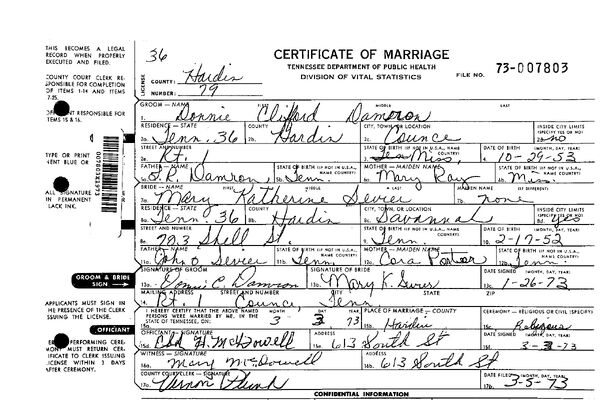 THIS BECOMES A LEGAL
RECORD WHEN PROPERLY
EXECUTED AND FILED.
COUNTY COURT CLERK RE-
SPONSIBLE FOR COMPLETION
OF ITEMS 1-14 AND ITEMS
RESPONSIBLE FOR
ITEMS 15 & 16.
TYPE OR PRINT
ALL SIGNATURE
IN PERMANENT
LACK INK.
GROOM & BRIDE
SIGN
APPLICANTS MUST SIGN IN
THE PRESENCE OF THE CLERK
ISSUING THE LICENSE.
OFFICIANT
PERFORMING CERE-
MUST RETURN CER-
TIFICATE TO CLERK ISSUING
LICENSE WITHIN 3 DAYS
AFTER CEREMONY.
36
CERTIFICATE OF MARRIAGE
TENNESSEE DEPARTMENT OF PUBLIC HEALTH
DIVISION OF VITAL STATISTICS
FILE NO. 73-007803
COUNTY: Hardin
LICENSE NUMBER: 79
GROOM — NAME FIRST MIDDLE LAST
1. Donnie Clifford Dameron
RESIDENCE — STATE COUNTY CITY, TOWN, OR LOCATION INSIDE CITY LIMITS
Tenn. 36 Hardin Counce no
STREET AND NUMBER STATE OF BIRTH (IF NOT IN U.S.A., NAME COUNTRY) DATE OF BIRTH (MONTH, DAY, YEAR)
Rt. 1 Miss. 10-29-53
FATHER — NAME STATE OF BIRTH (IF NOT IN U.S.A., NAME COUNTRY) MOTHER — MAIDEN NAME STATE OF BIRTH (IF NOT IN U.S.A., NAME COUNTRY)
Damron, Tenn. Mary Ray Miss.
BRIDE — NAME FIRST MIDDLE LAST MAIDEN NAME (IF DIFFERENT)
Mary Katherine Sevier none
RESIDENCE — STATE COUNTY CITY, TOWN, OR LOCATION INSIDE CITY LIMITS
Tenn 36 Hardin Savannah yes
STREET AND NUMBER STATE OF BIRTH (IF NOT IN U.S.A., NAME COUNTRY) DATE OF BIRTH (MONTH, DAY, YEAR)
Shell St. Tenn 2-17-52
FATHER — NAME STATE OF BIRTH MOTHER — MAIDEN NAME STATE OF BIRTH
John O Sevier Tenn Cora Tenn.
SIGNATURE OF GROOM SIGNATURE OF BRIDE DATE SIGNED (MONTH, DAY, YEAR)
Donnie C. Dameron Mary K. Sevier 1-26-73
MAILING ADDRESS
Rt. 1 Counce, Tenn
I HEREBY CERTIFY THAT THE ABOVE NAMED PERSONS WERE MARRIED BY ME, IN THE STATE OF TENNESSEE, ON: MONTH DAY YEAR PLACE OF MARRIAGE — COUNTY CEREMONY — RELIGIOUS OR CIVIL (SPECIFY)
3 3 73 Hardin Religious
OFFICIANT — SIGNATURE ADDRESS DATE SIGNED (MONTH, DAY, YEAR)
H. McDowell 613 South St 3-3-73
WITNESS — SIGNATURE ADDRESS
Mary McDowell 613 South St
COUNTY COURT CLERK — SIGNATURE DATE FILED (MONTH, DAY, YEAR)
Vernon 3-5-73
CONFIDENTIAL INFORMATION